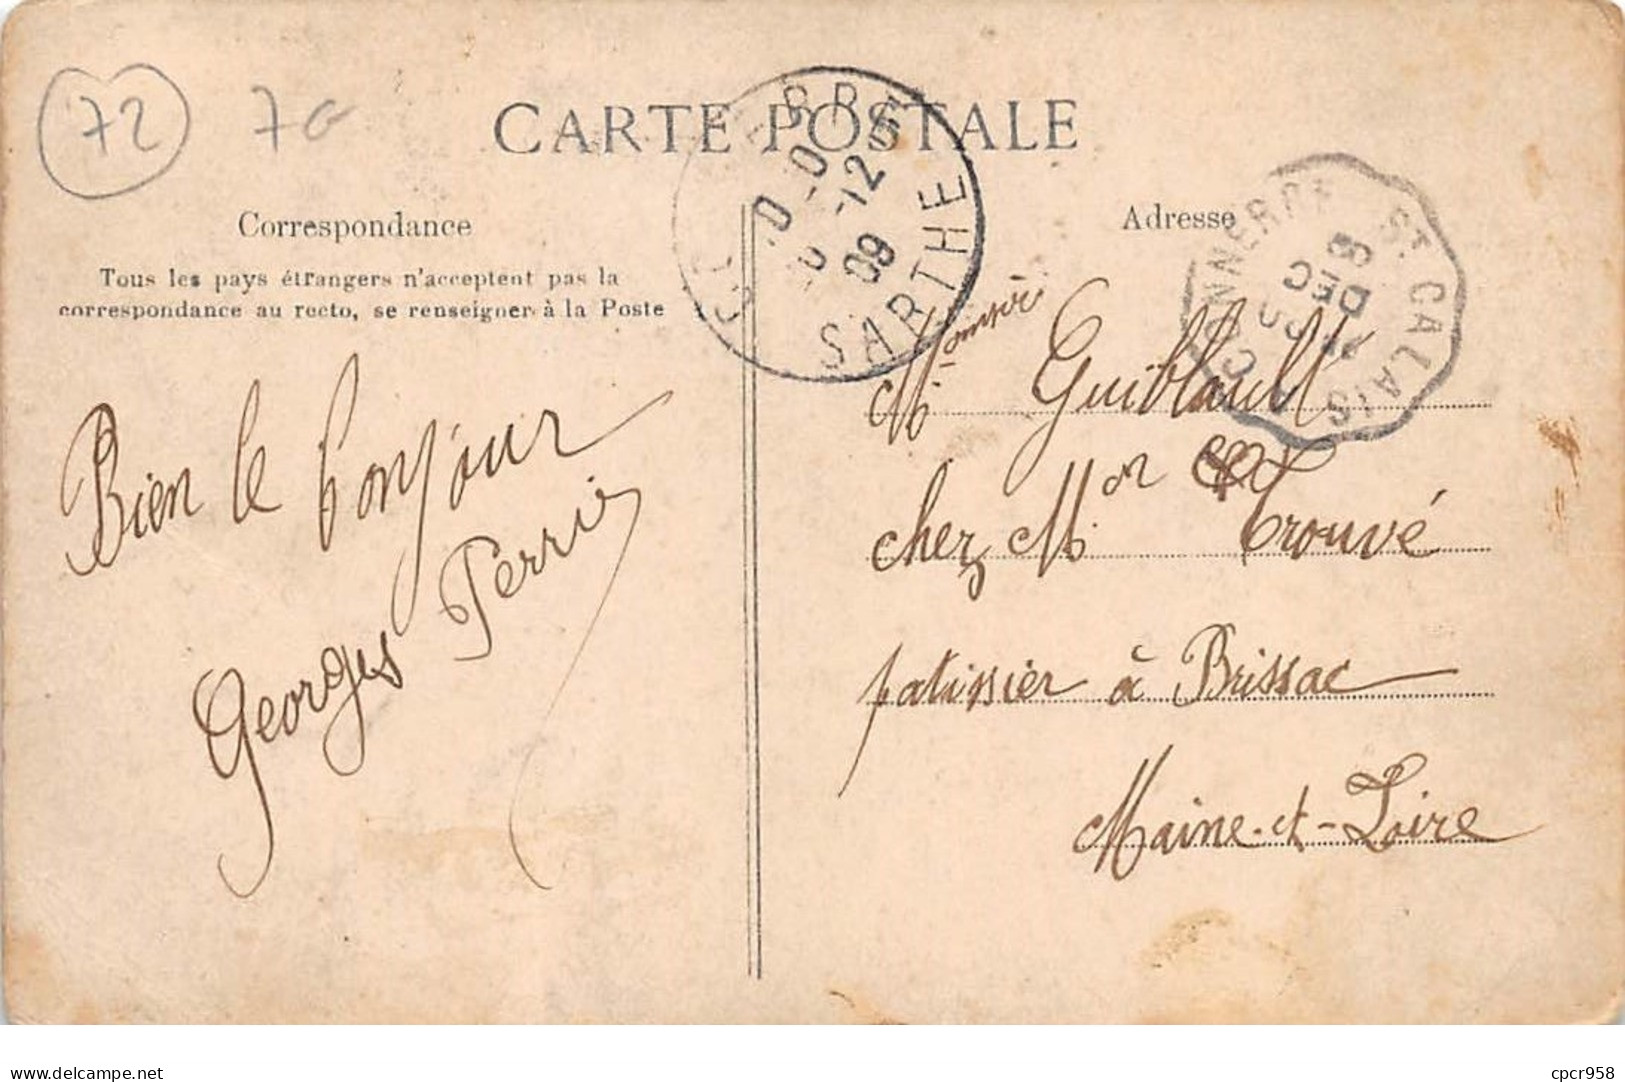 72 7G
CARTE POSTALE
Correspondance
Tous les pays étrangers n'acceptent pas la
correspondance au recto, se renseigner à la Poste
Bien le bonjour
Georges Perrin
Adresse
Monsieur
M. Guiblault
chez M. on Trouvé
patissier à Brissac
Maine-et-Loire
SARTHE
-12
09
CONNERRÉ A ST CALAIS
8
DEC
delcampe.net
cpcr958